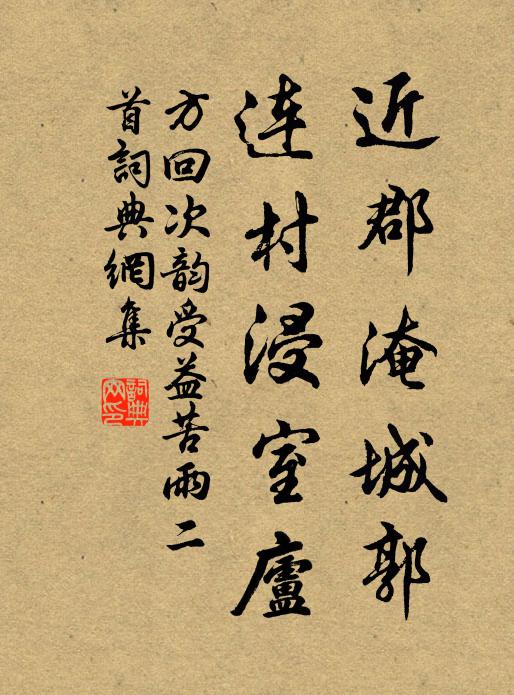 近郡淹城郭
連村浸室廬
方回次韵受益苦雨二
首詞典網集
詞典
网印